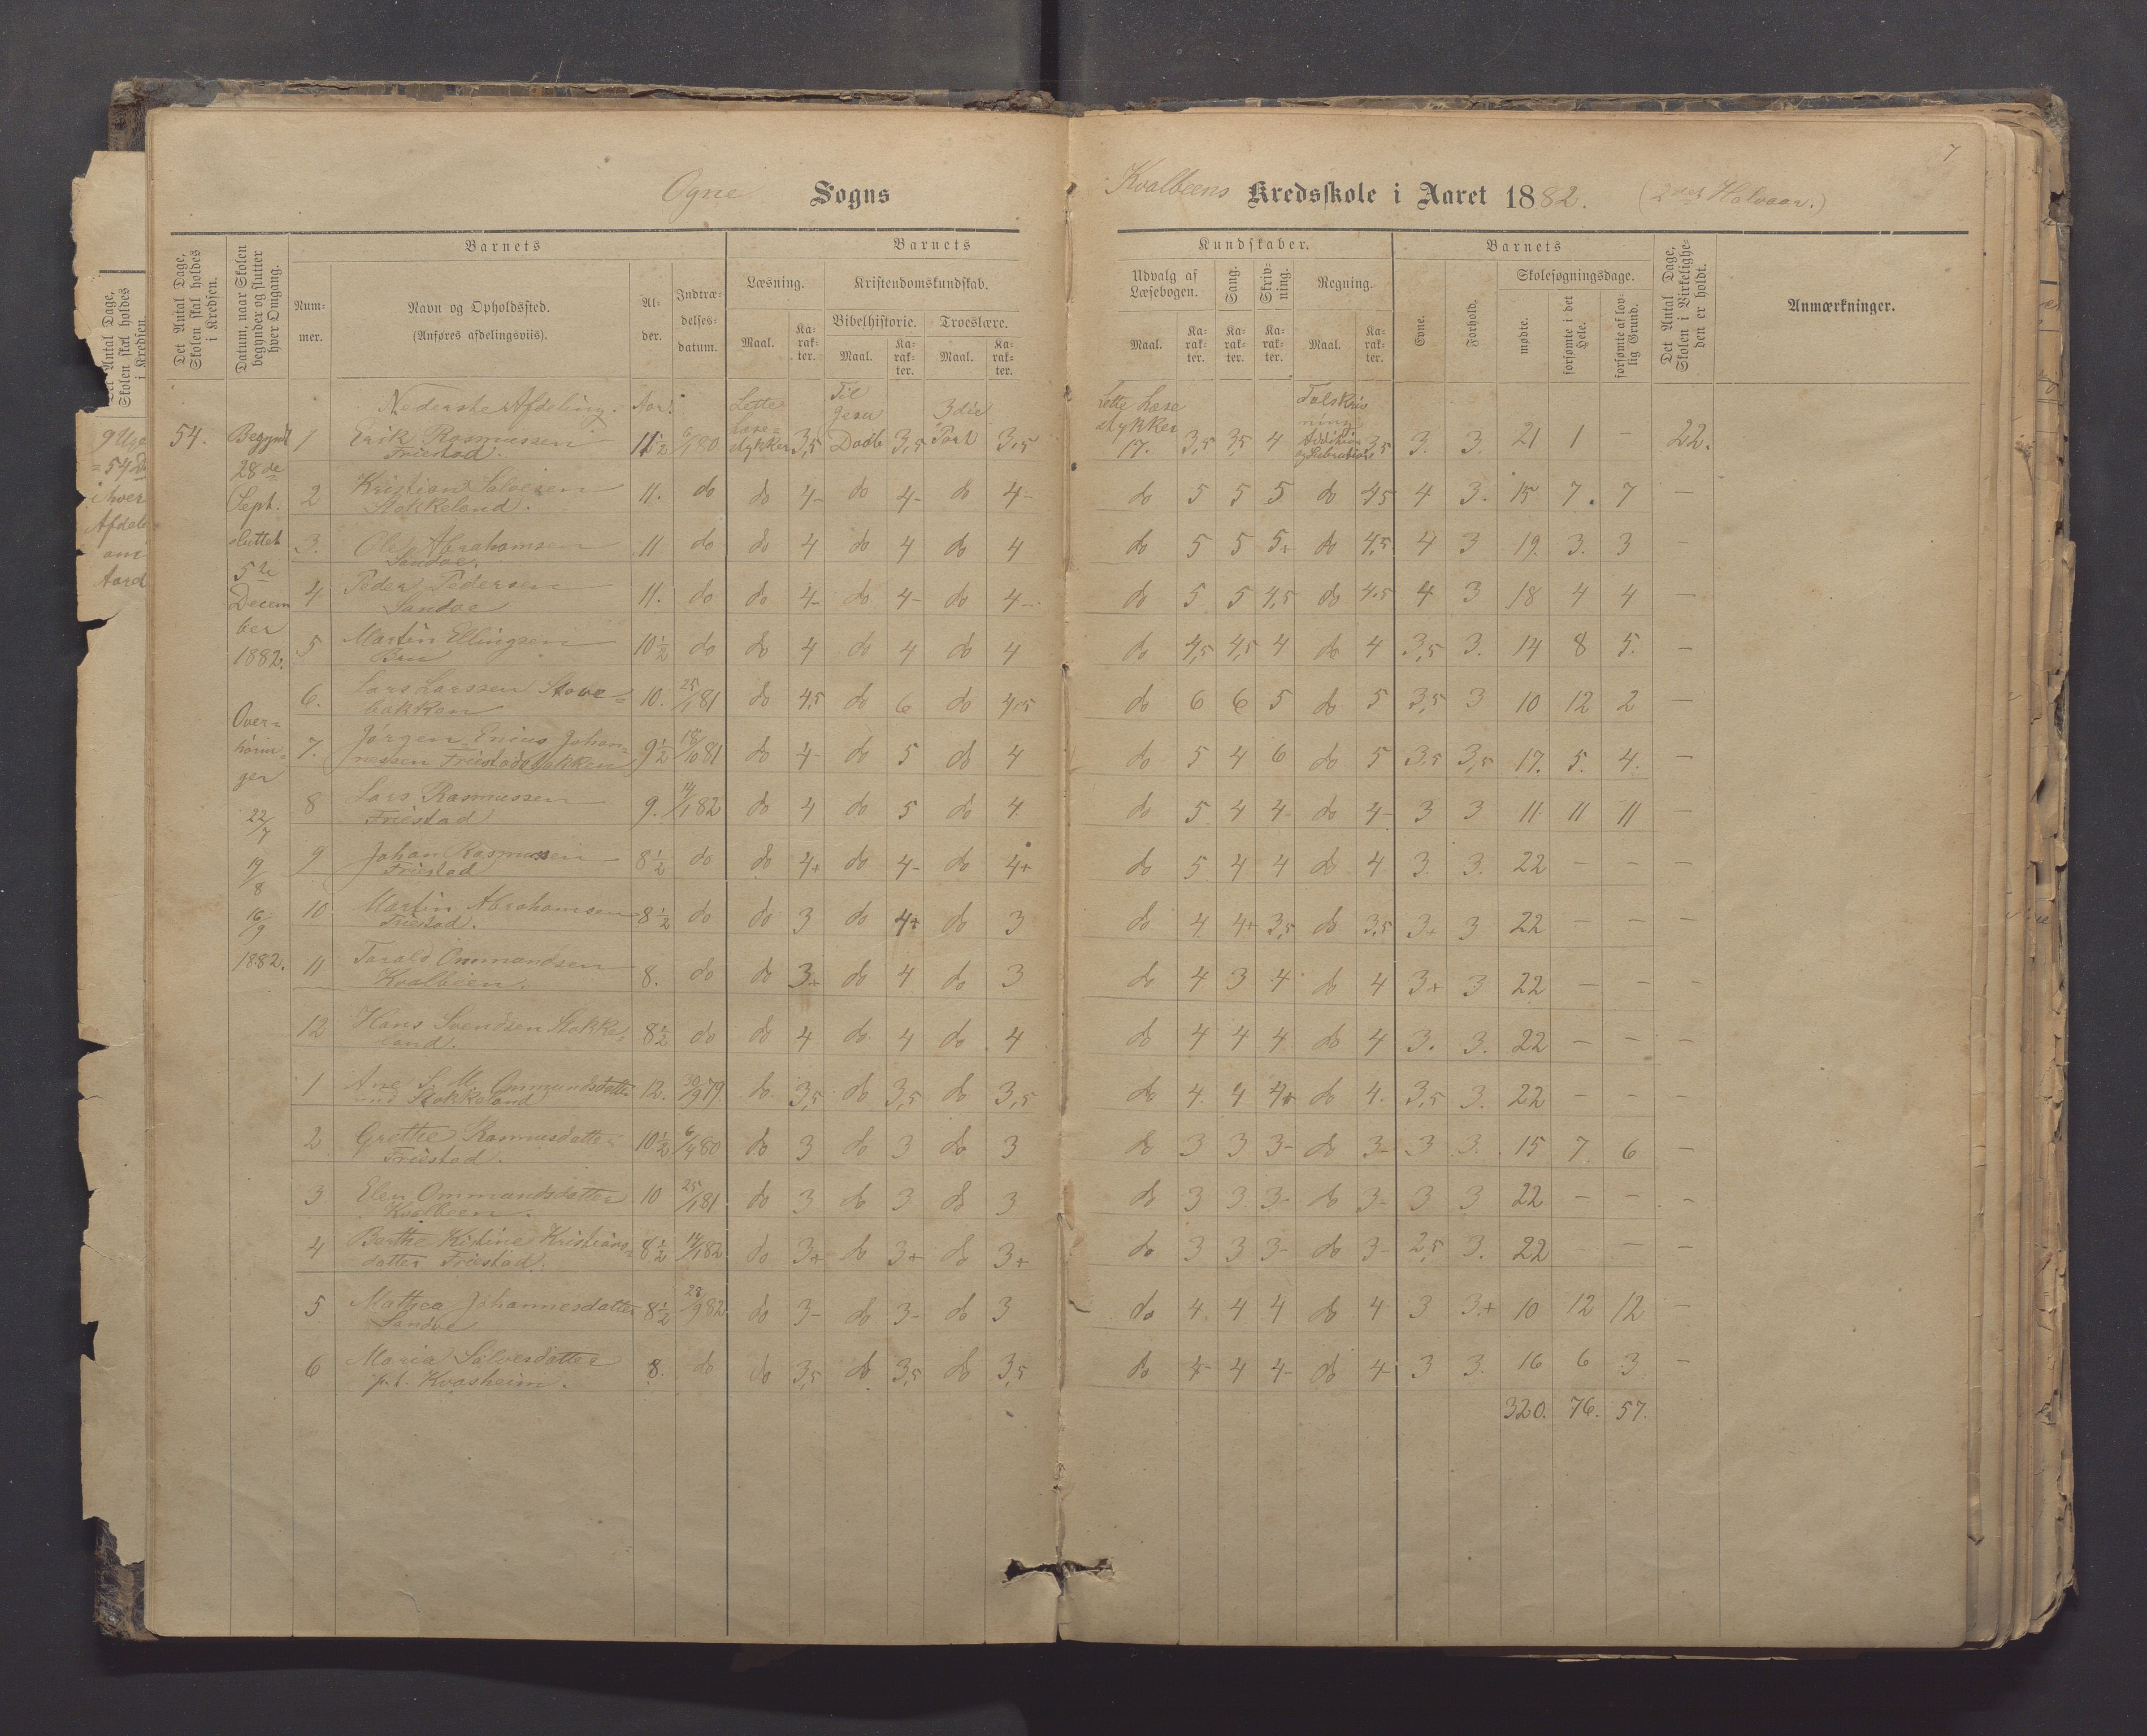 Ogne Sogns
Kvalbeens Kredsskole i Aaret 1882. (2det Halvaar.)
7
Det Antal Dage, Skolen skal holdes i Kredsen.
Datum, naar Skolen begynder og slutter hver Omgang.
Barnets
Nummer.
Navn og Opholdssted. (Anføres afdelingsviis).
Alder.
Indtrædelsesdatum.
Barnets
Læsning.
Kristendomskundskab.
Bibelhistorie. Troeslære.
Maal. Karakter. Maal. Karakter. Maal. Karakter.
Kundskaber.
Udvalg af Læsebogen.
Sang.
Skrivning.
Regning.
Maal. Karakter. Karakter. Karakter. Maal. Karakter.
Barnets
Evne.
Forhold.
Skolesøgningsdage.
mødte.
forsømte i det Hele.
forsømte af lovlig Grund.
Det Antal Dage, Skolen i Virkeligheden er holdt.
Anmærkninger.
54.
Begyndt
28de
Sept.
sluttet
5te
Decem
ber
1882.
Over=
hørin=
ger
22/7
19/8
16/9
1882.
Nederste Afdeling. Aar.
1 Erik Rasmussen Friestad. 11 1/2 6/1 80 Lette Læse= stykker 3,5 Til Jesu Død 3,5 3die Part 3,5 Lette Læse stykker 17. 3,5 3,5 4 Talskriv ning Addition og Subraktion 3,5 3. 3. 21 1 – 22.
2 Kristian Salvesen Stokkeland. 11. do do 4- do 4- do 4- do 5 5 5 do 4,5 4 3. 15 7. 7 –
3. Ole Abrahamsen Sandve. 11 do do 4 do 4 do 4 do 5 5 5+ do 4,5 4 3 19. 3. 3 –
4 Peder Pedersen Sandve 11. do do 4- do 4- do 4- do 5 5 4,5 do 4,5 4 3 18 4 4 –
5 Martin Ellingsen Bru 10 1/2 do do 4 do 4 do 4 do 4,5 4,5 4 do 4 3,5 3. 14 8 5. –
6. Lars Larssen Stove= bakken 10. 25/1 81 do 4,5 do 6 do 4,5 do 6 6 5 do 5 3,5 3 10 12 2 –
7. Jørgen Enius Johan= nessen Friestadbakken 9 1/2 18/10 81 do 4- do 5 do 4 do 5 4 6 do 5 3,5 3,5 17. 5. 4. –
8 Lars Rasmussen Friestad 9. 14/1 82 do 4 do 5 do 4. do 5 4 4- do 4- 3 3 11 11 11 –
9 Johan Rasmussen Friestad 8 1/2 do do 4+ do 4- do 4+ do 5 4 4 do 4 3. 3. 22 – – –
10 Martin Abrahamsen Friestad. 8 1/2 do do 3 do 4+ do 3 do 4 4+ 3,5 do 3,5 3+ 3 22 – – –
11 Torald Ommundsen Kvalbeen. 8. do do 3+ do 4 do 3 do 4 3 4 do 4 3+ 3 22 – – –
12 Hans Svendsen Stokke= land. 8 1/2 do do 4 do 4 do 4 do 4 4 4 do 4 3. 3. 22 – – –
1 Ane S. M. Ommundsdatter Stokkeland 12. 30/9 79 do 3,5 do 3,5 do 3,5 do 4. 4 4+ do 4. 3,5 3. 22 – – –
2 Grethe Rasmusdatter Friestad. 10 1/2 6/4 80 do 3 do 3 do 3 do 3 3 3- do 3- 3 3. 15 7. 6 –
3 Elen Ommundsdatter Kvalbeen. 10 25/1 81 do 3 do 3 do 3 do 3 3 3- do 3- 3 3 22 – – –
4 Berthe Kistine Kristians= datter Friestad. 8 1/2 14/1 82 do 3+ do 3+ do 3+ do 3 3 3- do 3- 2,5 3. 22 – – –
5 Mathea Johannesdatter Sandve 8 1/2 28/9 82. do 3- do 3- do 3 do 4 4 4 do 4 3 3+ 10 12 12 –
6 Maria Salvesdatter p.t. Kvasheim. 8. do do 3,5 do 3,5 do 3,5 do 4- 4 4- do 4- 3 3. 16 6 3 –
320. 76. 57.